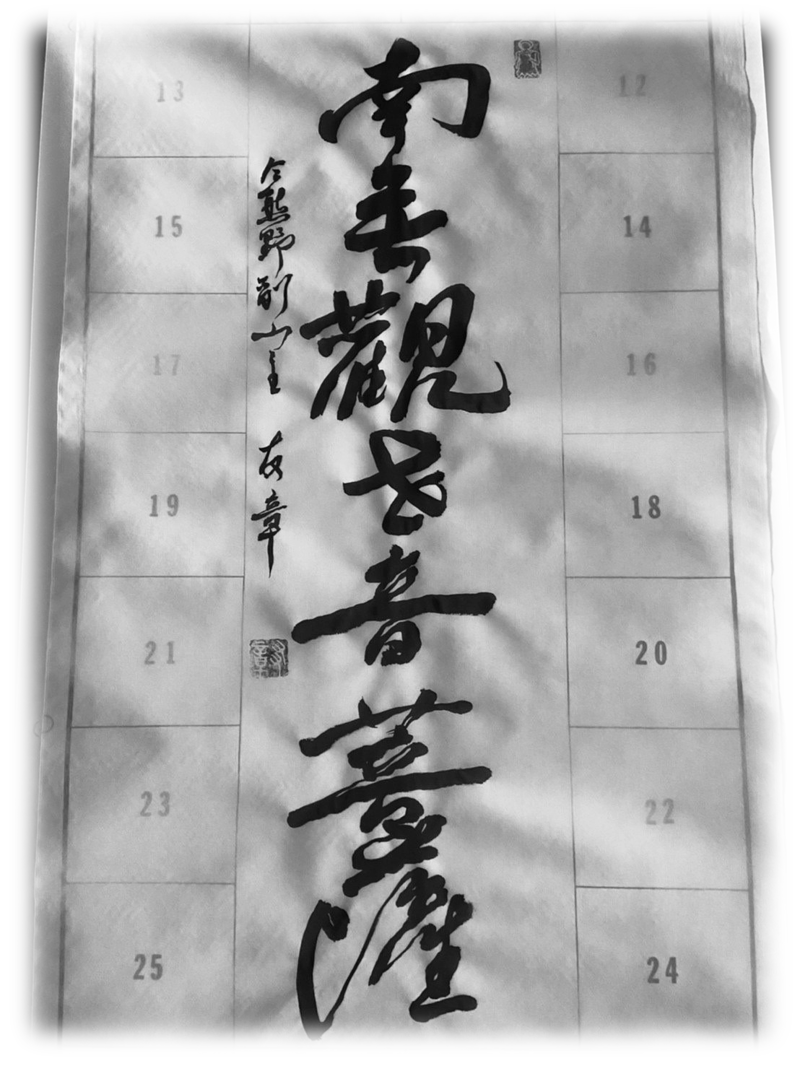 12
14
16
18
20
22
24
南無觀世音菩薩
今熊野前山主
章
13
15
17
19
21
23
25